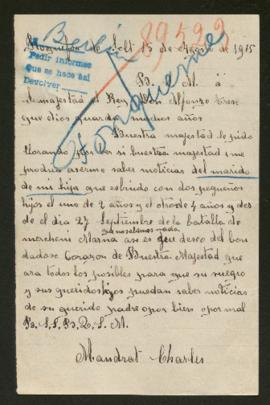 89599
Berlin
Pedir informes
que se hace así
Devolver
Fonquerne
de Solt 15 de Agosto de 1915
B. M. á
su majestad el Rey Don Alfonso trese
que dios guarde muchos años
Buestra majestad le pido
llorando por dios si buestra majestad me
produse aserme saber noticias del marido
de mi hija que es biudo con dos pequeños
hijos el uno de 2 años y el otro de 4 años y des
de el dia 27 Septiembre de la batalla de
marcheni Marna no sabemos nada
asi es que deseo del bon
dadoso Corazon de Buestra Majestad que
ara todos los posibles para que su suegro
y sus queridos hijos puedan saber noticias
de su querido padre opor bien opor mal
B. S. M.
Mandrat Charles